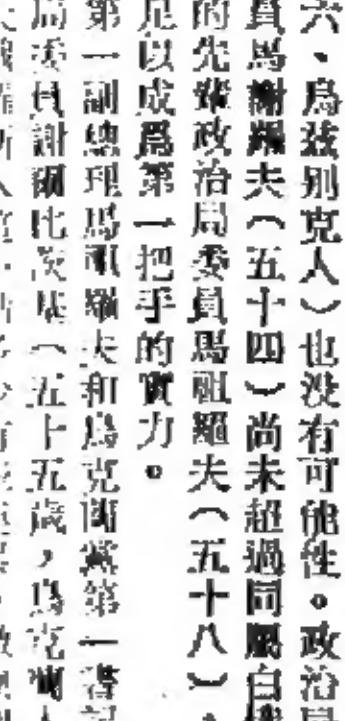 六、烏茲別克人）也没有可能性。政治局
員馬謝羅夫（五十四）尚未超過同屬白俄
的先輩政治局委員馬祖羅夫（五十八），
足以成爲第一把手的實力。
第一副總理馬祖羅夫和烏克蘭黨第一書記
局委員謝爾比茨基（五十五歲，烏克蘭人